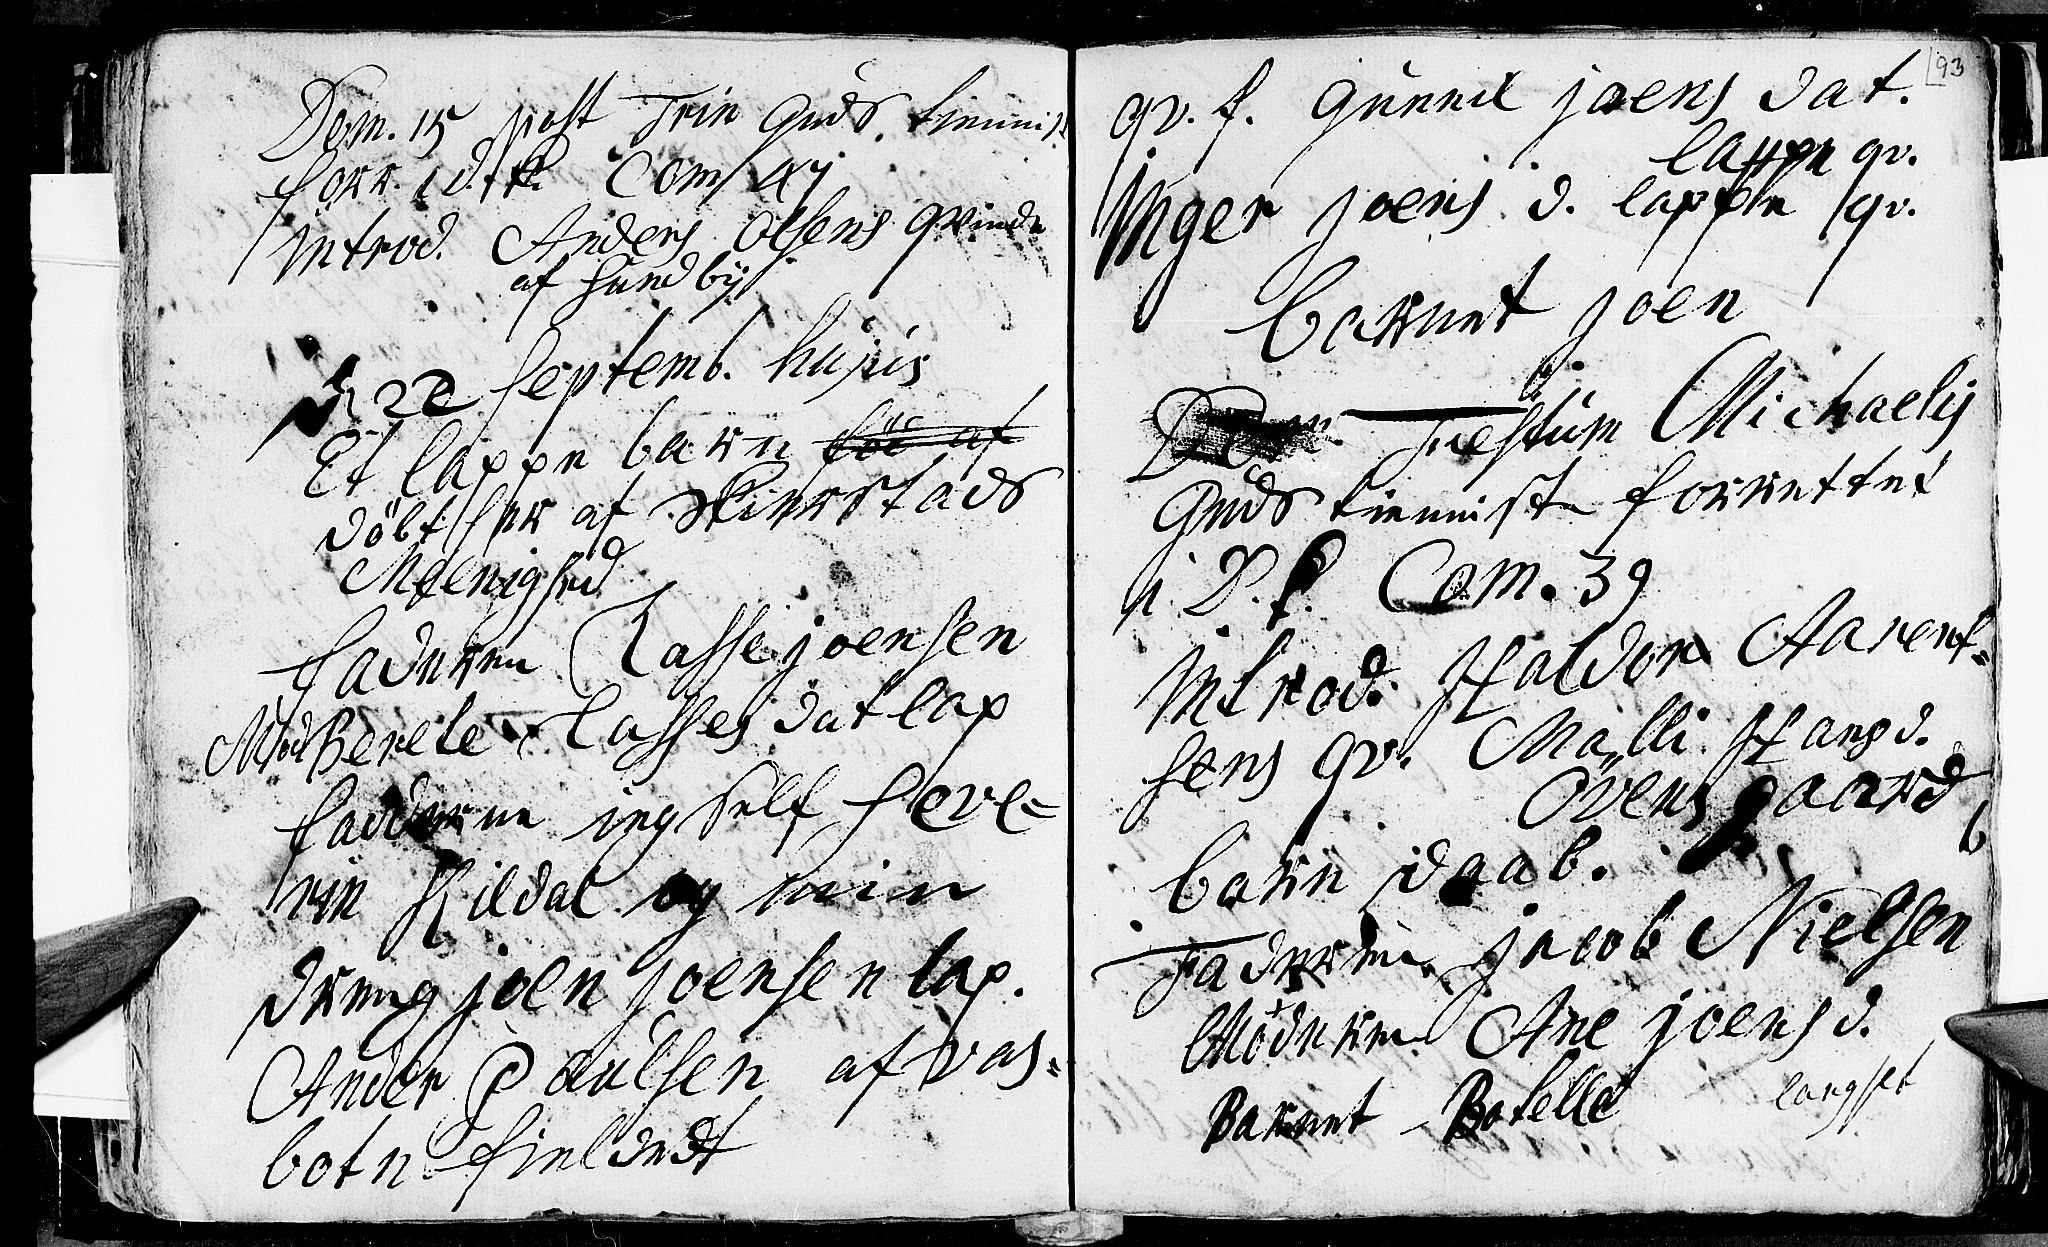 Dom. 15 post Trin Guds tienniste
forr. i d. k. Com 47
introd. Anders Olsens qvinde
af sundby
d. 22 Septemb. hujus
Et lappe barn föd af
döbt her af Skierstads
Meenighed
faderen Lasse joensen
Mod Berete Lasses dat lap
fadderne ieg self Seve-
rin Hildal og min
dreng joen joensen lap.
Ander Paulsen af vas-
botn fieldedt
93
qv. f. Gunnil joens dat.
lappe qv.
Inger joens d. lappe qv.
barnet joen
Festum Michaelis
Guds tienniste forrettet
i D. k. Com. 39
Introd. Haldor Aarent-
sens qv. Malli Hansd.
Övensgaard
barn i daab.
Faderen jacob Nielsen
Möderen Ane joens d.
langset
Barnet Botelle